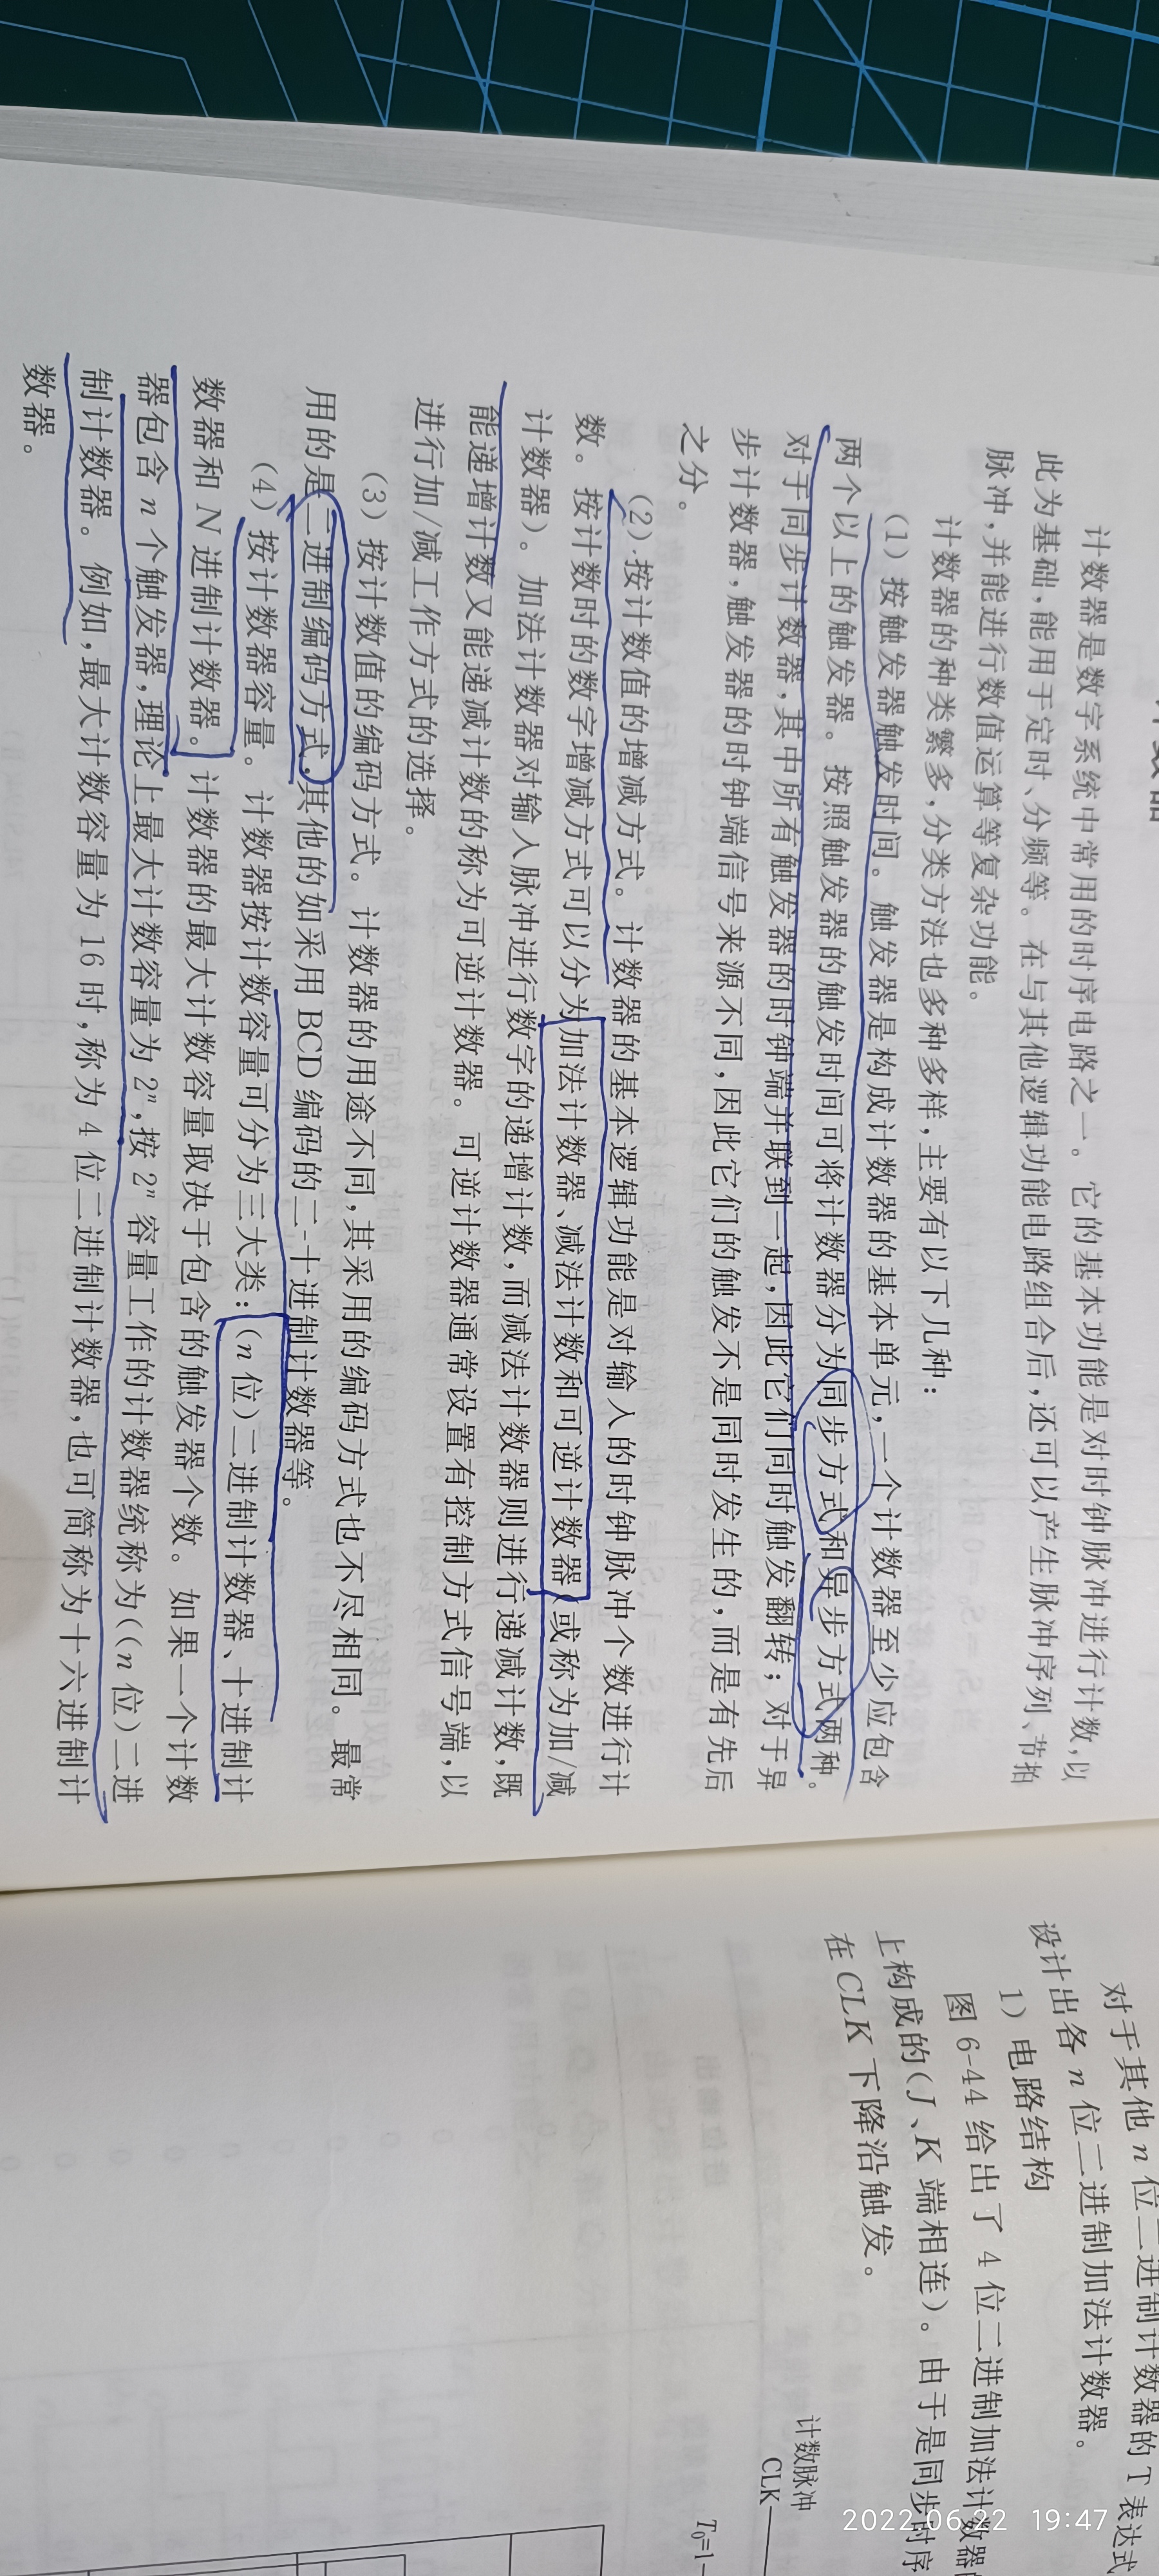 计数器是数字系统中常用的时序电路之一。它的基本功能是对时钟脉冲进行计数,以
此为基础,能用于定时、分频等。在与其他逻辑功能电路组合后,还可以产生脉冲序列、节拍
脉冲,并能进行数值运算等复杂功能。
计数器的种类繁多,分类方法也多种多样,主要有以下几种:
(1) 按触发器触发时间。触发器是构成计数器的基本单元,一个计数器至少应包含
两个以上的触发器。按照触发器的触发时间可将计数器分为同步方式和异步方式两种。
对于同步计数器,其中所有触发器的时钟端并联到一起,因此它们同时触发翻转;对于异
步计数器,触发器的时钟端信号来源不同,因此它们的触发不是同时发生的,而是有先后
之分。
(2) 按计数值的增减方式。计数器的基本逻辑功能是对输入的时钟脉冲个数进行计
数。按计数时的数字增减方式可以分为加法计数器、减法计数和可逆计数器(或称为加/减
计数器)。加法计数器对输入脉冲进行数字的递增计数,而减法计数器则进行递减计数,既
能递增计数又能递减计数的称为可逆计数器。可逆计数器通常设置有控制方式信号端,以
进行加/减工作方式的选择。
(3) 按计数值的编码方式。计数器的用途不同,其采用的编码方式也不尽相同。最常
用的是二进制编码方式,其他的如采用 BCD 编码的二-十进制计数器等。
(4) 按计数器容量。计数器按计数容量可分为三大类:(n 位)二进制计数器、十进制计
数器和 N 进制计数器。计数器的最大计数容量取决于包含的触发器个数。如果一个计数
器包含 n 个触发器,理论上最大计数容量为 2ⁿ,按 2ⁿ 容量工作的计数器统称为((n 位)二进
制计数器。例如,最大计数容量为 16 时,称为 4 位二进制计数器,也可简称为十六进制计
数器。
对于其他 n 位二进制计数器的 T 表达式
设计出各 n 位二进制加法计数器。
1) 电路结构
图 6-44 给出了 4 位二进制加法计数器
上构成的(J、K 端相连)。由于是同步时序
在 CLK 下降沿触发。
计数脉冲
CLK
T₀=1
2022.06.22 19:47